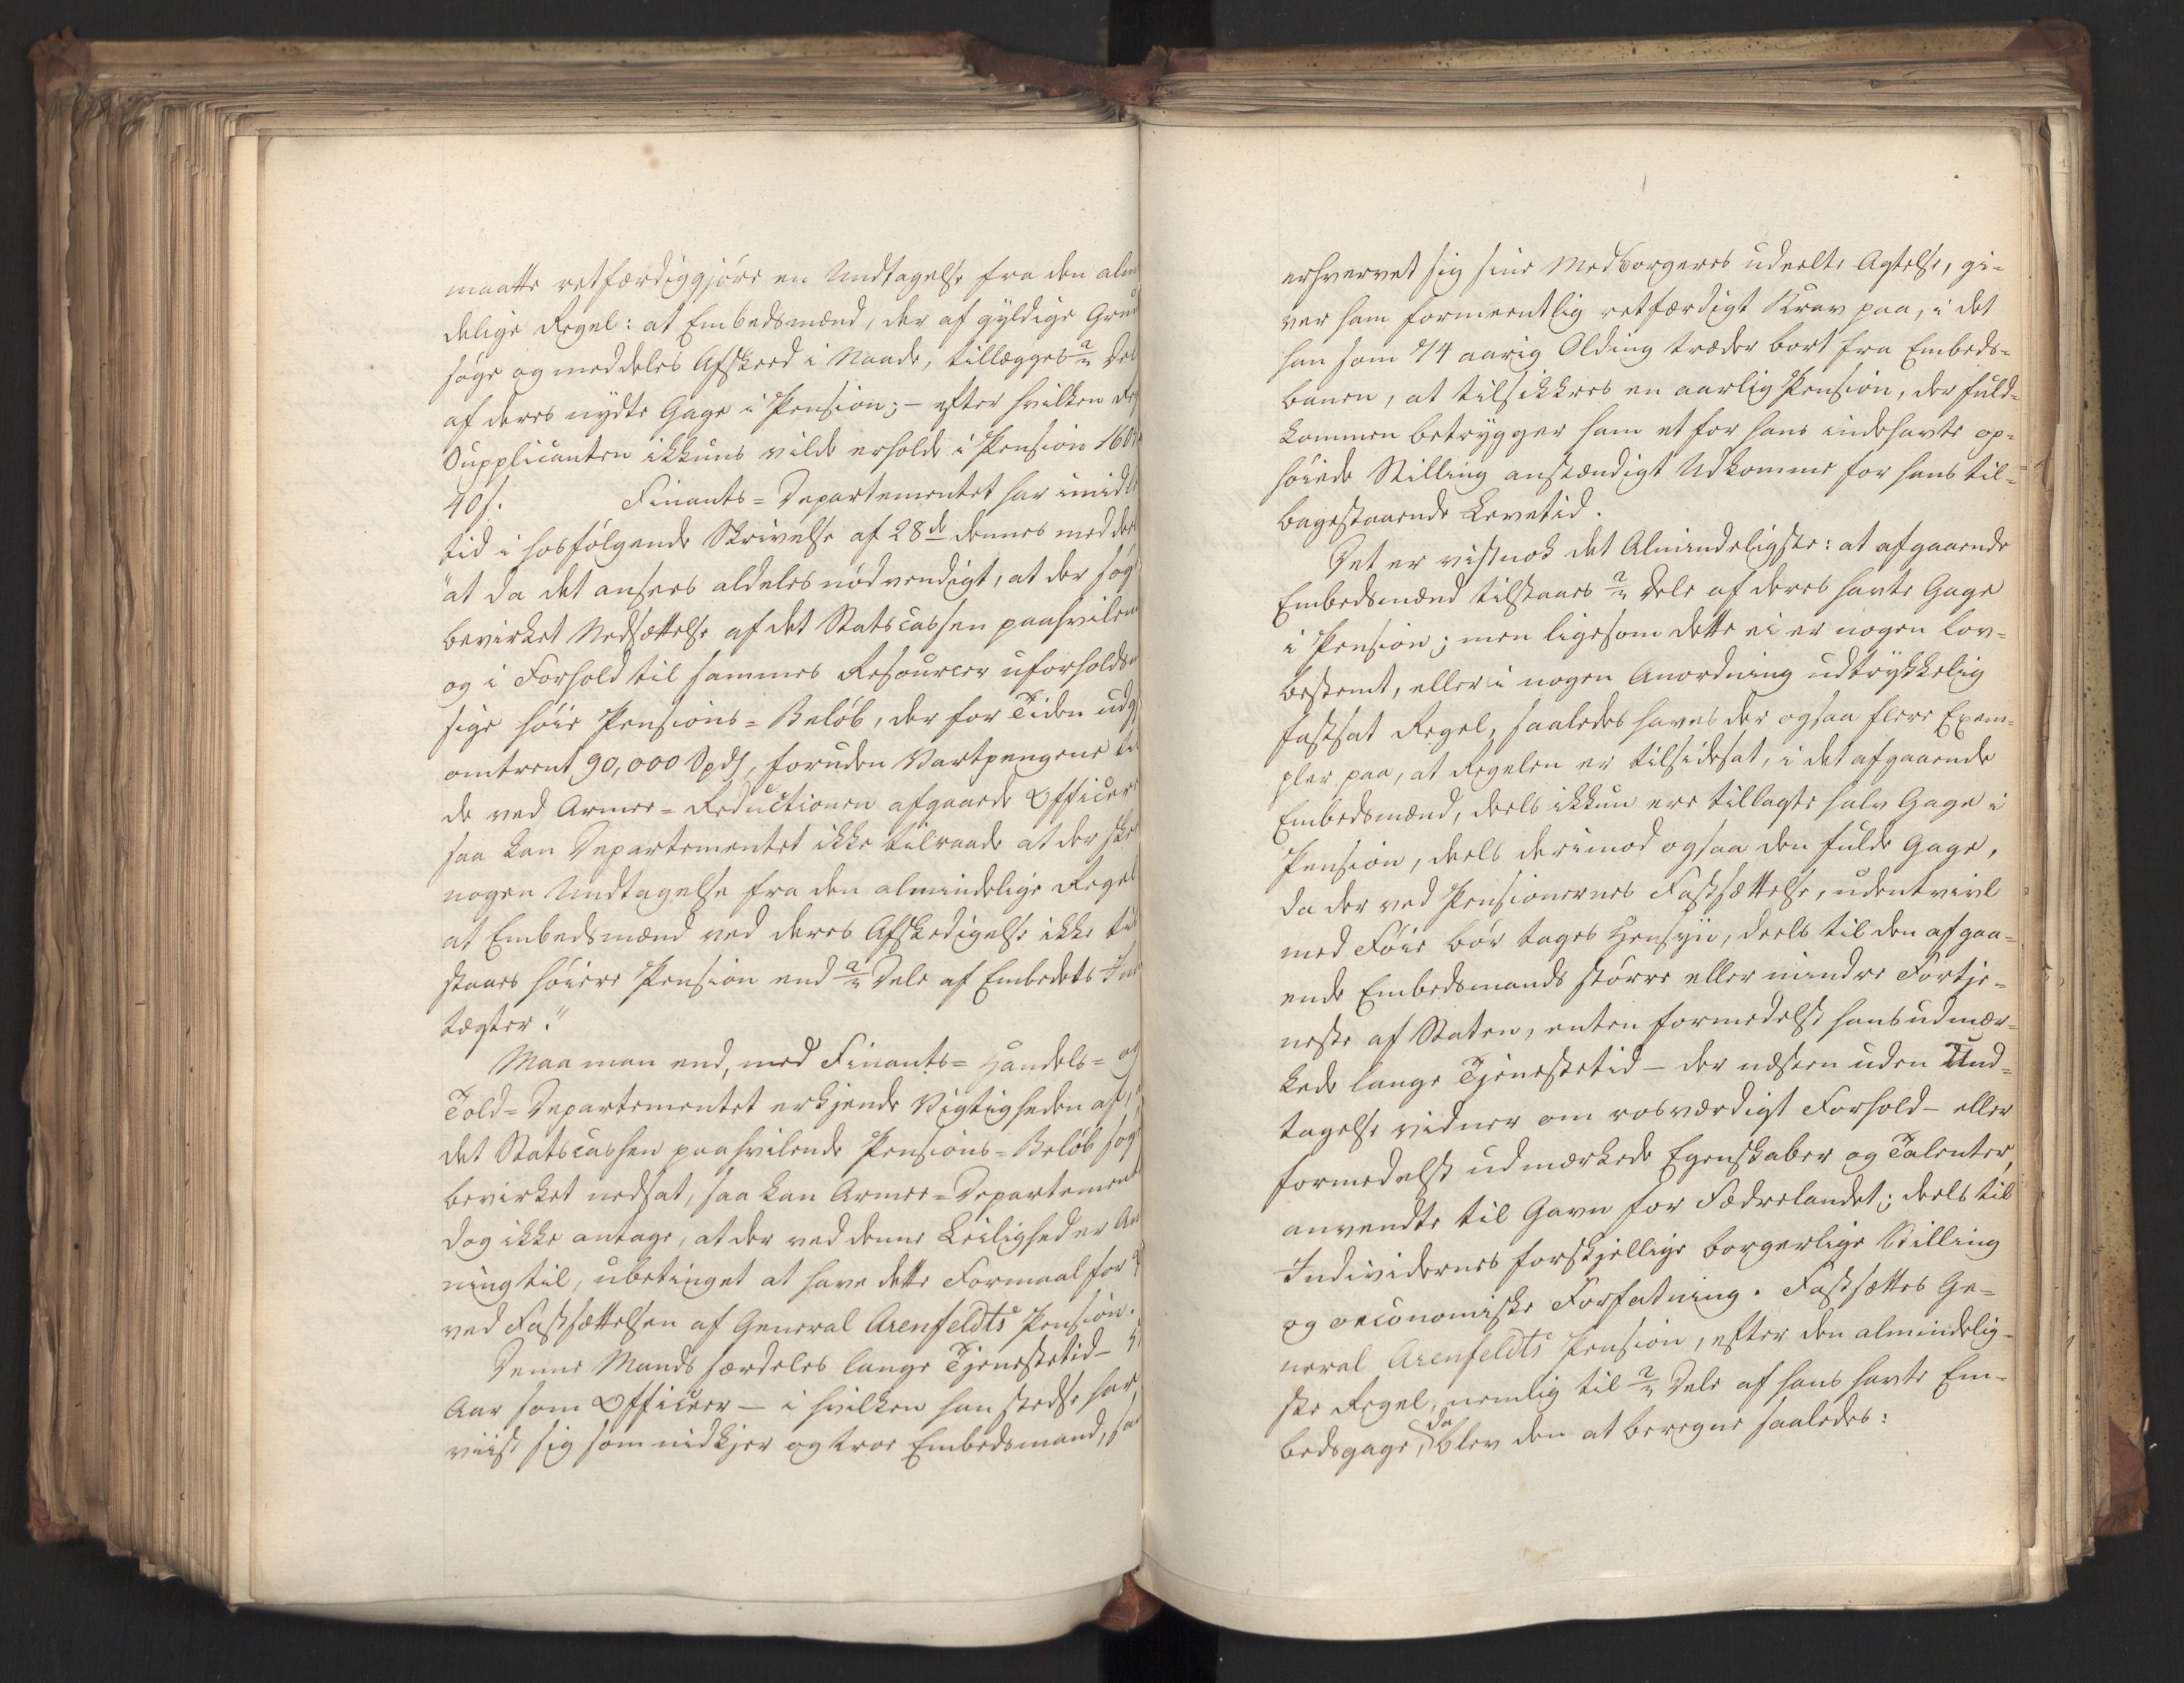 maatte retfærdiggjøre en Undtagelse fra den alm
delige Regel: at Embedsmænd, der af gyldige Grun
søge og meddeles Afskeed i Naade, tillægges 2/3 Del
af deres nydte Gage i Pension; – efter hvilken Reg
Supplicanten ikkuns vilde erholde i Pension 1600
40 s. Finants-Departementet har imidl
tid i hosfølgende Skrivelse af 28de dennes meddeel
"at da det ansees aldeles nødvendigt, at der søg
bevirket Nedsættelse af det Statscassen paahvilen
og i Forhold til sammes Resourcer uforholdsm
sige høie Pensions-Beløb, der for Tiden udg
omtrent 90,000 Spds, foruden Vartpengene til
de ved Armee-Reductionen afgaaede Officerer
saa kan Departementet ikke tilraade at der skee
nogen Undtagelse fra den almindelige Regel
at Embedsmænd ved deres Afskedigelse ikke til
staaes høiere Pension end 2/3 Dele af Embedets In
tægter."
Maa man end, med Finants- Handels- og
Told-Departementet erkjende Vigtigheden af,
det Statscassen paahvilende Pensions-Beløb søg
bevirket nedsat, saa kan Armee-Departement
dog ikke antage, at der ved denne Leilighed er An
ning til, ubetinget at have dette Formaal for Ø
ved Fastsættelsen af General Arenfeldts Pension.
Denne Mands særdeles lange Tjenestetid – 5
Aar som Officeer – i hvilken han stedse har
viist sig som nidkjer og troe Embedsmand, sa
erhvervet sig sine Medborgeres udeelte Agtelse, gi-
ver ham formeentlig retfærdigt Krav paa, i det
han som 74 aarig Olding træder bort fra Embeds-
banen, at tilsikkres en aarlig Pension, der fuld-
kommen betrygger ham et for hans indehavte op-
høiede Stilling anstændigt Udkomme for hans til-
bagestaaende Levetid.
Det er vistnok det Almindeligste: at afgaaende
Embedsmænd tilstaaes 2/3 Dele af deres havte Gage
i Pension; men ligesom dette ei er nogen lov-
bestemt, eller i nogen Anordning udtrykkelig
fastsat Regel, saaledes haves der ogsaa flere Exem-
pler paa, at Regelen er tilsidesat, i det afgaaende
Embedsmænd, deels ikkun ere tillagte halv Gage i
Pension, deels derimod ogsaa den fulde Gage,
da der ved Pensionernes Fastsættelse, udentvivl
med Føie bør tages Hensyn, deels til den afgaa-
ende Embedsmands større eller mindre Fortje-
neste af Staten, enten formedelst hans udmær-
kede lange Tjenestetid – der næsten uden Und-
tagelse vidner om rosværdigt Forhold – eller
formedelst udmærkede Egenskaber og Talenter,
anvendte til Gavn for Fædrelandet; deels til
Individernes forskjellige borgerlige Stilling
og oeconomiske Forfatning. Fastsættes Ge-
neral Arenfeldts Pension, efter den almindelig-
ste Regel, nemlig til 2/3 Dele af hans havte Em-
bedsgage, da blev den at beregne saaledes: